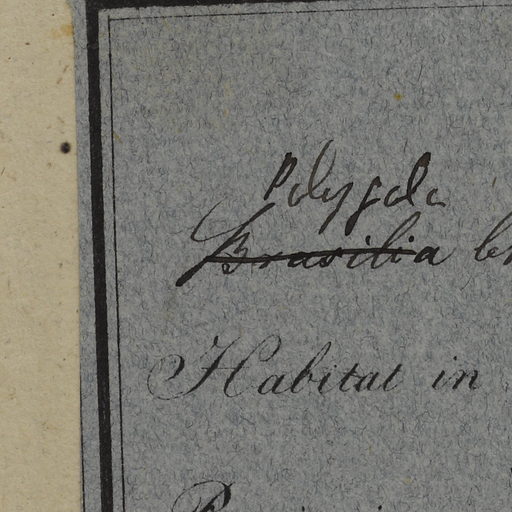 Polygala
Brasilia
Habitat in